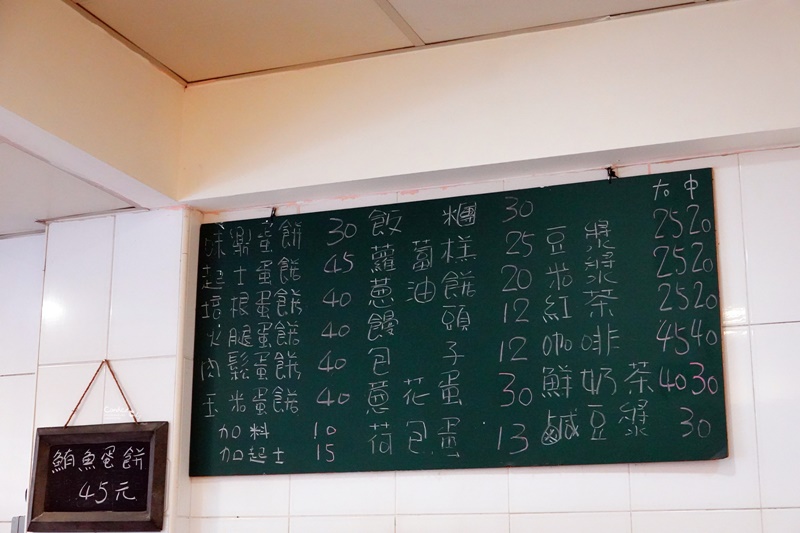 大 中
原味蛋餅 30 飯糰 30
起士蛋餅 45 蘿蔔糕 25 豆漿 25 20
培根蛋餅 40 蔥油餅 20 米漿 25 20
火腿蛋餅 40 饅頭 12 紅茶 25 20
肉鬆蛋餅 40 包子 12 咖啡 45 40
玉米蛋餅 40 蔥花蛋 30 鮮奶茶 40 30
加料 10 荷包蛋 13 鹹豆漿 30
加起士 15
鮪魚蛋餅
45元